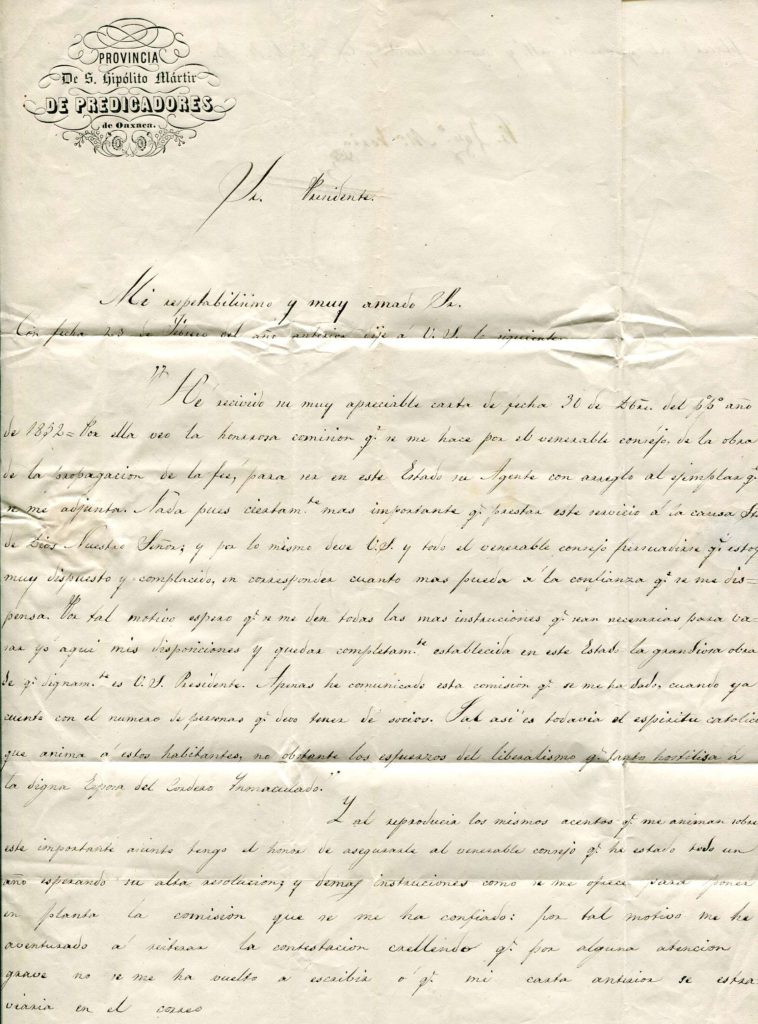 PROVINCIA
De S. Hipólito Mártir
DE PREDICADORES
de Oaxaca.
Sr. Presidente.
Mi respetabilisimo y muy amado Sr.
Con fecha 23 de Febrero del año anterior dije á V. S. lo siguiente
"Hé recivido su muy apreciable carta de fecha 30 de Dbre. del p.º p.º año
de 1882 = Por ella veo la honrrosa comision q.e se me hace por el venerable consejo, de la obra
de la propagacion de la feé, para ser en este Estado su Agente con arreglo al ejemplar q.e
se me adjunta. Nada pues ciertam.te mas importante q.e prestar este servicio á la causa Sta.
de Dios Nuestro Señor; y por lo mismo deve V.S. y todo el venerable consejo persuadirse q.e estoy
muy dispuesto y complacido, en corresponder cuanto mas pueda á la confianza q.e se me dis=
pensa. Por tal motivo espero q.e se me den todas las mas instruciones q.e sean necesarias para va=
sar yó aqui mis disposiciones y quedar completam.te establecida en este Estado la grandiosa obra
de q.e dignam.te es V. S. Presidente. Apenas he comunicado esta comision q.e se me ha dado, cuando ya
cuento con el numero de personas q.e devo tener de socios. Tal asi es todavia el espiritu catolico
que anima á estos habitantes, no obstante los esfuerzos del liberalismo q.e tanto hostilisa á
la digna Esposa del Cordero Inmaculado."
Y al reproducir los mismos acentos q.e me animan sobre
este importante asunto tengo el honor de asegurarle al venerable consejo q.e he estado todo un
año esperando su alta resolucion; y demas instruciones como se me ofrece para poner
en planta la comision que se me ha confiado: por tal motivo me he
aventurado á reiterar la contestacion crellendo q.e por alguna atencion
grave no se me ha vuelto a escribir ó q.e mi carta anterior se estra
viaria en el correo